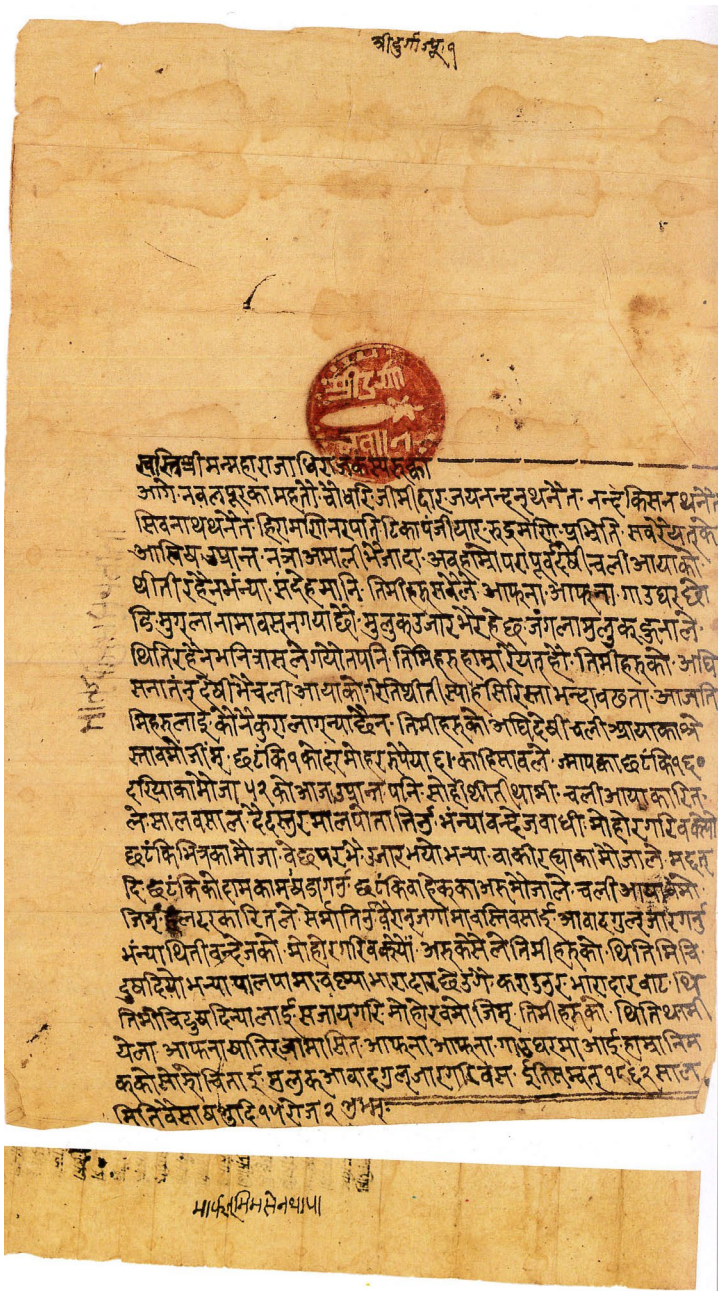 श्रीदुर्गाज्यू १
श्रीदुर्गा
भवानि
स्वस्तिश्रीमन्महाराजाधिराजकस्य रुक्का
आगे नवलपुरका महतो चौधरि जीमीदार जयनन्द्र थनैत नन्दकिसन थनैत
सिवनाथ थनैत हिरामणि नरपति टिका पंजीयार रुद्रमणि प्रभिति सवै रैयत् के
आसिष उप्रान्त नञा अमाली भै जादा अब हाम्रो परापूर्व देषी चली आयाको
थीती रहेन भंन्या संदेह मानि तिमीहरु सवैले आफ्ना आफ्ना गाउघर छो
डि मुगलानामा वसन गया छौ मुलुक उजार भै रहेछ जंगला मुलुक
थिति रहेन भनि त्रासले गयौ न पनि तिमिहरु हाम्रा रैयत् हौ तिमीहरुको अघि
सनातंन् देषी भै चली आयाको रितिथीती स्याहा सिरिस्ता भन्दा वढता आज ति
मिहरुलाई कौनै कुरा लागन्या छैन तिमीहरुको अघि देषी चली आयाका श्रे
स्ताबमोजीम् छटंकि १ को दर मोहर रुपैया ६। का हिसावले ज्मापका छटंकि १६०
दरियाका मौजा ५२ को आज उप्रान्त पनि सोही थीती थामी चली आयाका रित
ले सालवसाल दैदस्तुर मालपोत तिर्नु भंन्या वन्देज वाधी मोहोर गरिवक्स्यौ
छटंकि भित्रका मौजा वेछपर भै उजार भयो भन्या वाकी रह्याका मौजाले मद्दत्
दि छटंकिको हामकाम षडा गर्नु छटंकि वाहेकका अरु मौजाले चली आया वमो
जिम् हलदरका रितले सेर्मा तिर्नु वैरान् जगामा वस्ति वसाई आवाद गुल्जार गर्नु
भंन्या थिती वन्देजको मोहोर गरिवक्स्यौं अरु कसैले तिमीहरुको थिति मिचि
दुष दियो भन्या पाल्पामा वस्न्या भारादार छेउ गै कराउनु र भारादारवाट थि
ति मीची दुष दिन्यालाई सजाय गरि मोहोर वमोजिम् तिमीहरुको थिति थामी
येला आफ्ना षातिर्जामा सित आफ्ना आफ्ना गाउघरमा आई हाम्रा निम
कको सोझो चिताई मुलुक आवाद गुल्जार गरि वस ईति सम्वत् १८६२ साल
मिति वैसाष शुदि १५ रोज २ शुभम्
मार्फत् भिमसेन थापा